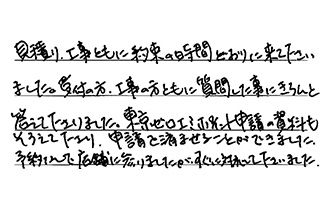 見積り、工事ともに約束の時間どおりに来て下さい
ました。受付の方、工事の方ともに質問した事にきちんと
答えて下さりました。東京ゼロエミポイント申請の資料も
そろえて下さり、申請で済ませることができました。
予約なしで店舗に寄りましたが、すぐに対応して下さいました。